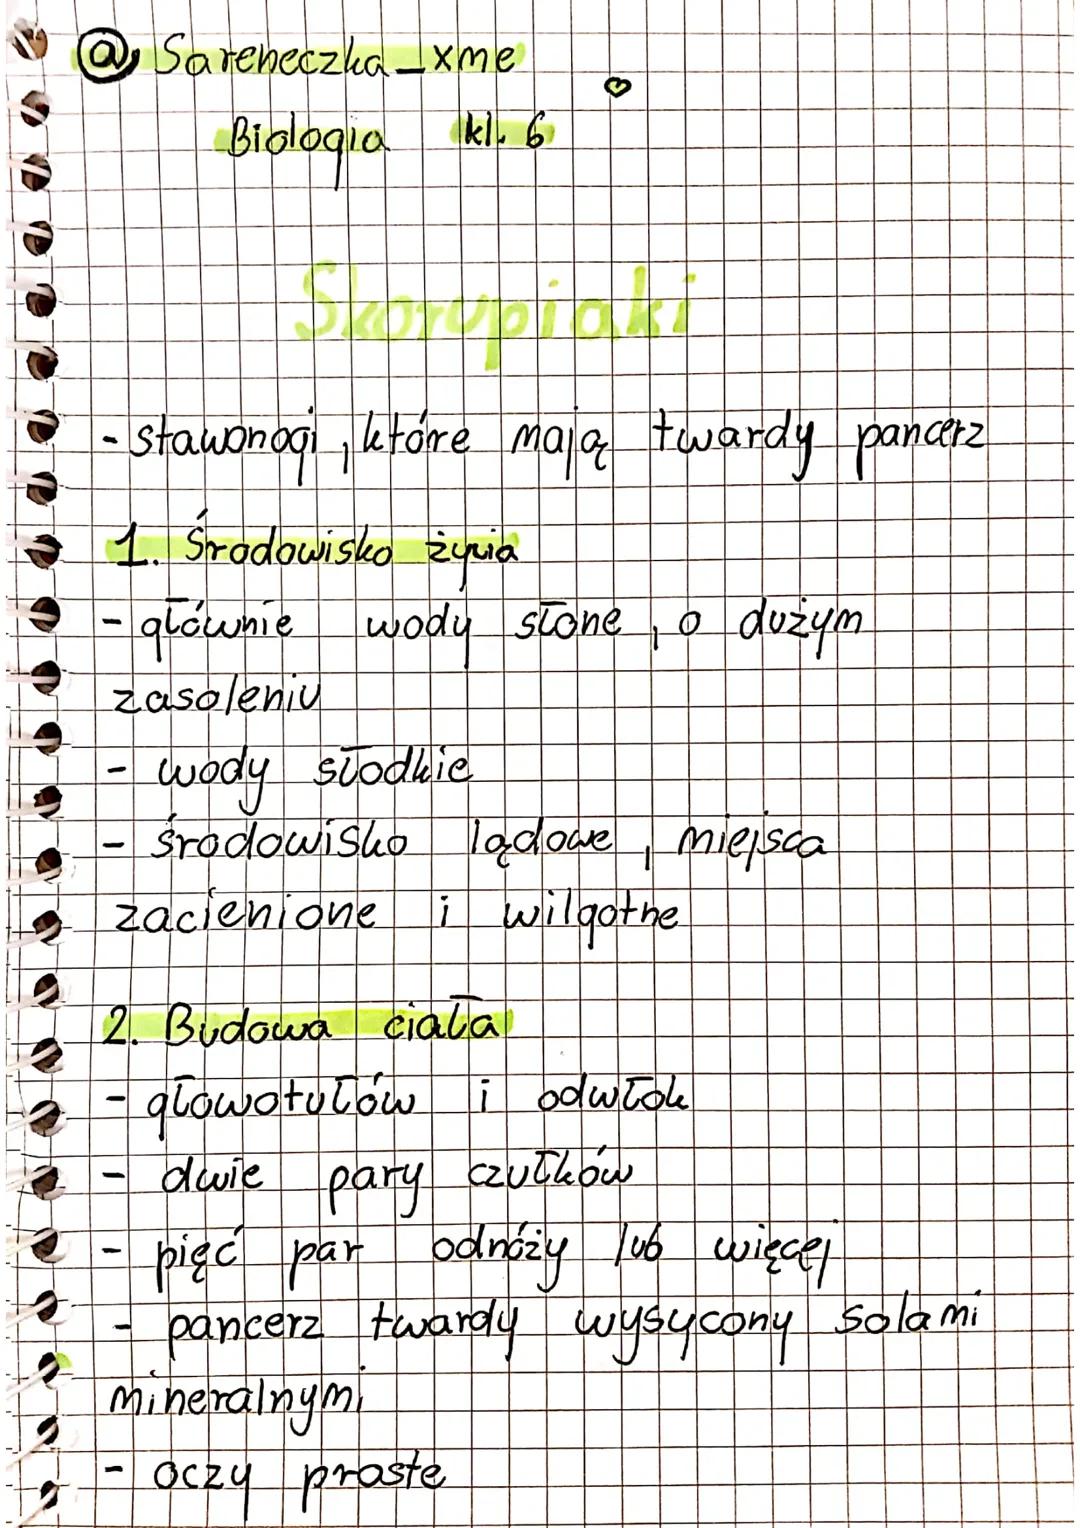 @ Sareneczka_xme
Biologia kl. 6
Skorupiaki
- stawonogi, które mają twardy pancerz
1. Środowisko życia
- głównie wody słone, o dużym
zasoleniu
- wody słodkie
- środowisko lądowe, miejsca
zacienione i wilgotne
2. Budowa ciała
- głowotułów i odwłok
- dwie pary czułków
- pięć par odnóży lub więcej
- pancerz twardy wysycony solami
mineralnymi
- oczy proste